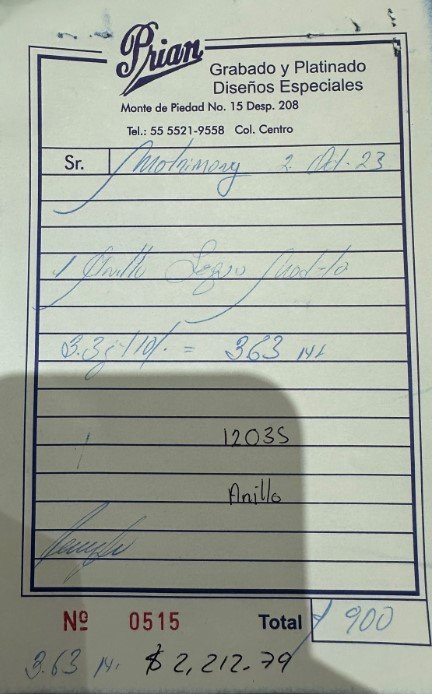 Prian
Grabado y Platinado
Diseños Especiales
Monte de Piedad No. 15 Desp. 208
Tel.: 55 5521-9558 Col. Centro
Sr. Matrimony 2 Oct. 23
1 Anillo Segun Modelo
3.3g + 10% = 363 14k
1 12035
Anillo
Nº 0515 Total 900
3.63 14. $ 2,212.79